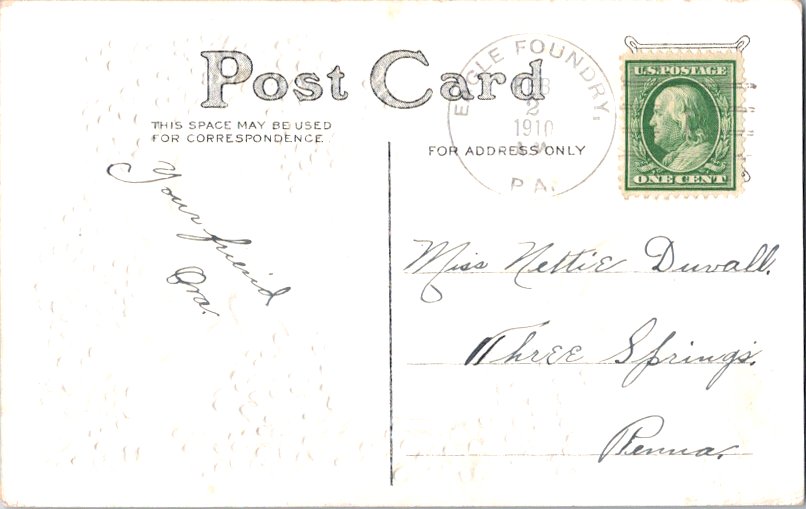 Post Card
THIS SPACE MAY BE USED
FOR CORRESPONDENCE
FOR ADDRESS ONLY
EAGLE FOUNDRY,
2
1910
PA.
U.S. POSTAGE
ONE CENT
Your friend
Ora.
Miss Nettie Duvall.
Three Springs.
Penna.